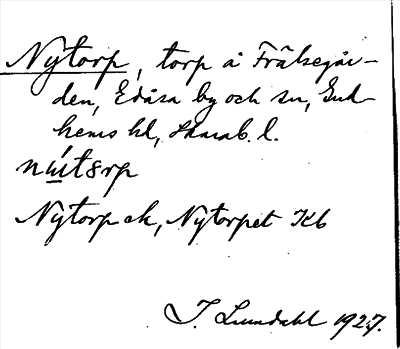 Nýtorp, torp å Frälsegår-
den, Edåsa by och sn, Gud-
hems hd, Skarab. l.
Nytorp ek, Nytorpet Kb
I. Lundahl 1927.